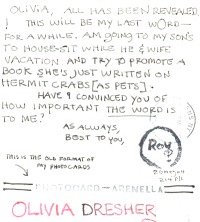 OLIVIA, ALL HAS BEEN REVEALED
! THIS WILL BE MY LAST WORD—
FOR A WHILE. AM GOING TO MY SON'S
TO HOUSE-SIT WHILE HE & WIFE
VACATION AND TRY TO PROMOTE A
BOOK SHE'S JUST WRITTEN ON
HERMIT CRABS [AS PETS].
HAVE I CONVINCED YOU OF
HOW IMPORTANT THE WORD IS
TO ME?
AS ALWAYS,
BEST TO YOU,
Roy
THIS IS THE OLD FORMAT OF
MY PHOTOCARDS
OLIVIA DRESHER